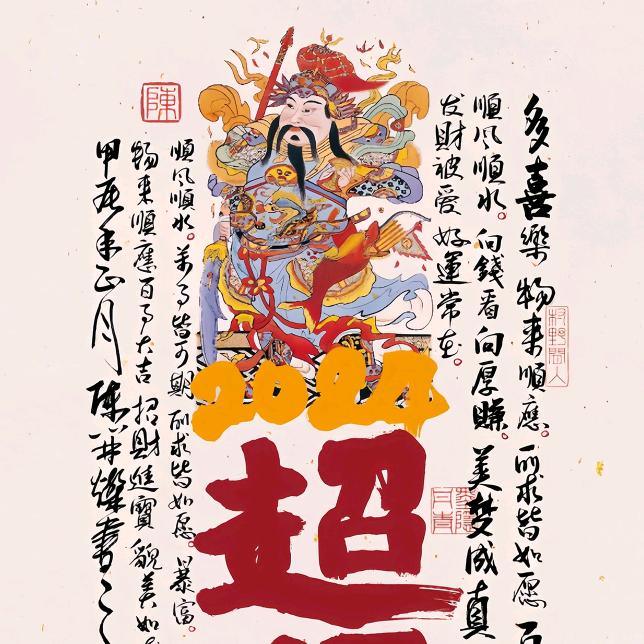 多喜樂 物来順應。所求皆如愿
順风順水。向錢看向厚賺。美梦成真
发财被爱 好運常在。
2024
超
順风順水。萬事皆可期 所求皆如愿。暴富。
物来順應百事大吉 招財進寶 貌美如
甲辰年正月 陈
陳
村野閒人